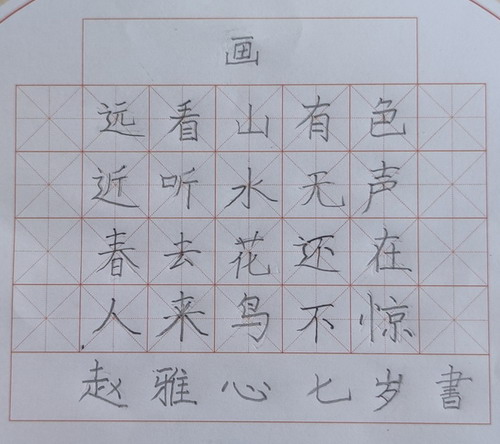 画
远看山有色
近听水无声
春去花还在
人来鸟不惊
赵雅心七岁書